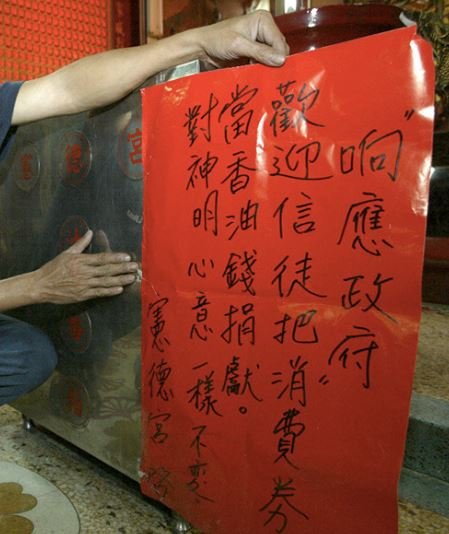 "响應政府"
歡迎信徒把消費券
當香油錢捐獻。
對神明心意一樣不變
憲德宮
憲德宮